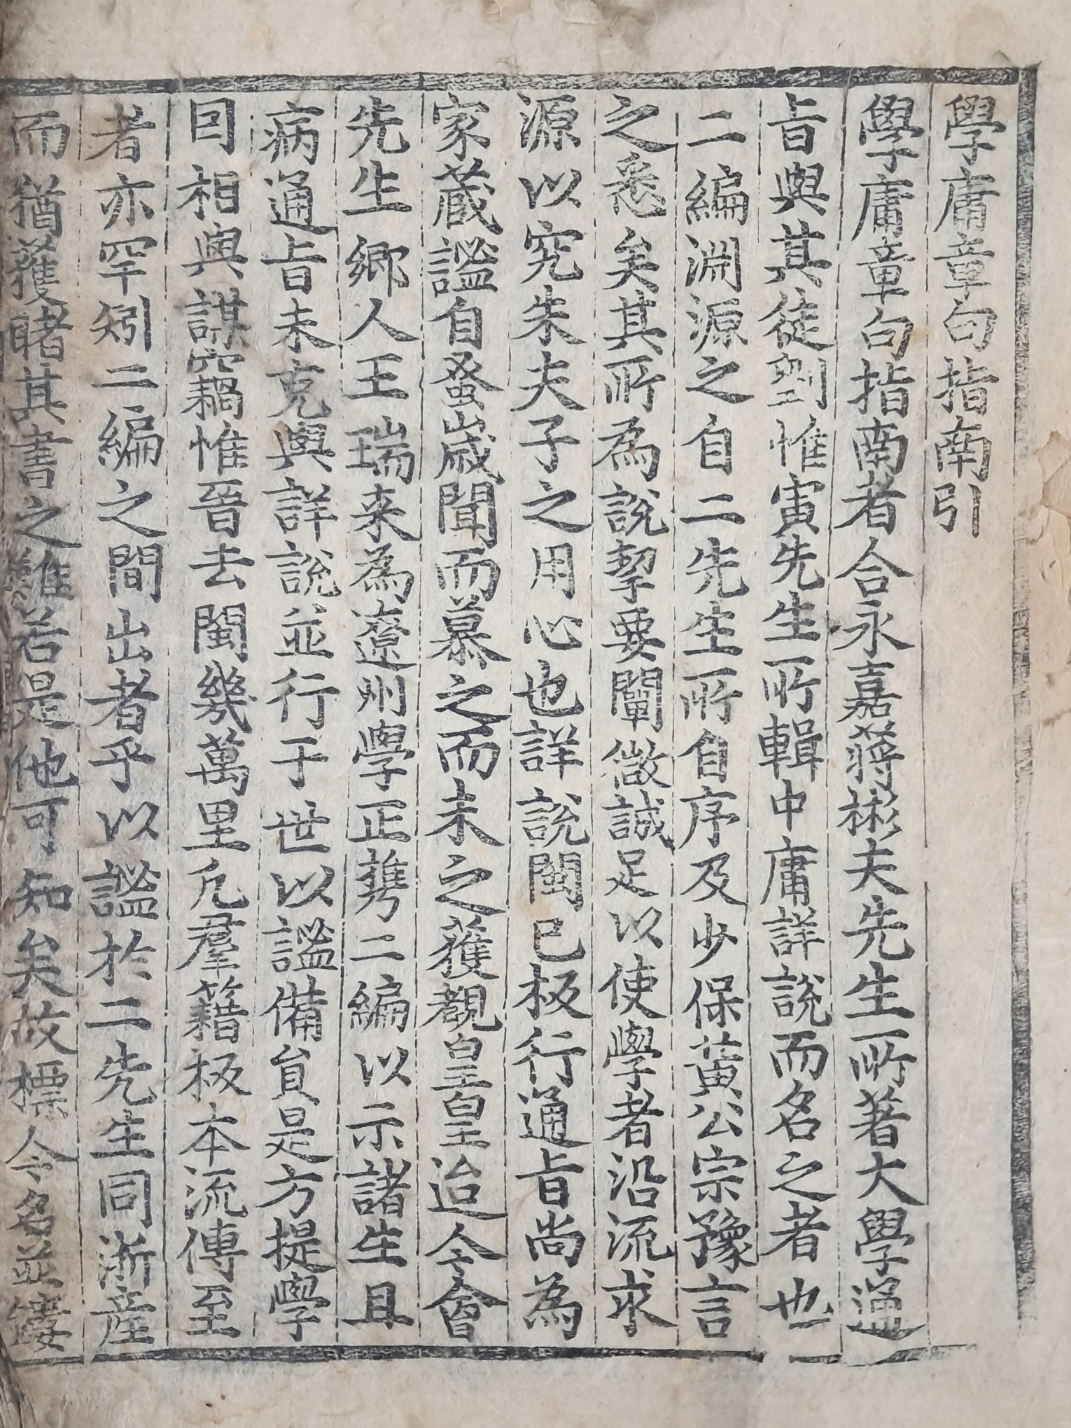 學庸章句指南引
學庸章句指南者合永嘉蔣彬夫先生所著大學通
旨與其徒劉惟寅先生所輯中庸詳說而名之者也
二編淵源之自二先生所自序及少保黃公宗豫言
之悉矣其所為說挈要闡微誠足以使學者沿流求
源以究朱夫子之用心也詳說閩已板行通旨尚為
家藏謐自蚤歲聞而慕之而未之獲覩皇皇迨今會
先生鄉人王瑞来為遼州學正携二編以示諸生且
病通旨未克與詳說並行于世以謐備員是方提學
囙相與謀竊惟晉去閩幾萬里凢羣籍板本流傳至
者亦罕矧二編之間出者乎以謐於二先生同浙産
而猶獲睹其書之難若是他可知矣故標今名並鋟